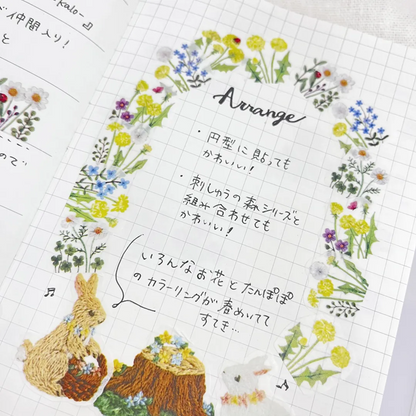 Kalo-
仲間入り!
と
ので
Arrange
・円型に貼っても
かわいい!
・刺しゅうの森シリーズと
組み合わせても
かわいい!
いろんなお花とたんぽぽ
のカラーリングが春めいてて
すてき…